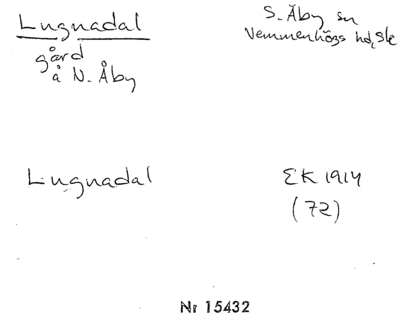 Lugnadal
gård
å N. Åby
S. Åby sn
Vemmenhögs hd, Sk
Lugnadal
EK 1914
(72)
Nr 15432